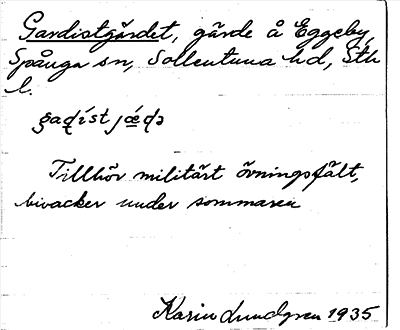 Gardistgärdet, gärde å Eggeby,
Spånga sn, Sollentuna hd, Sth
l.
gaḍíst jǽḍə
Tillhör militärt övningsfält,
bivacker under sommaren
Karin Lundgren 1935